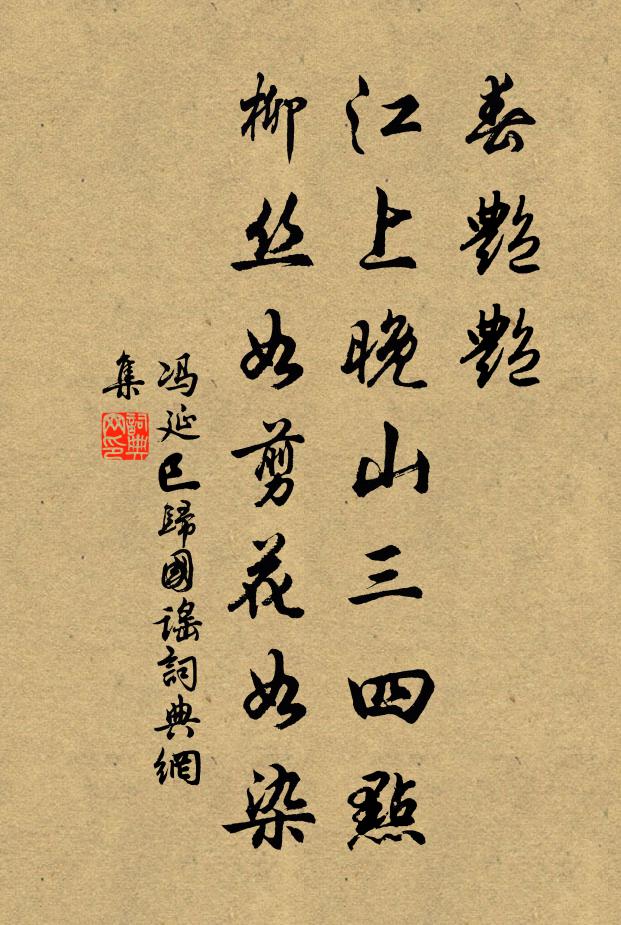 春艷艷
江上晚山三四點
柳丝如剪花如染
冯延巳歸國謠詞典網
集
詞典
网印